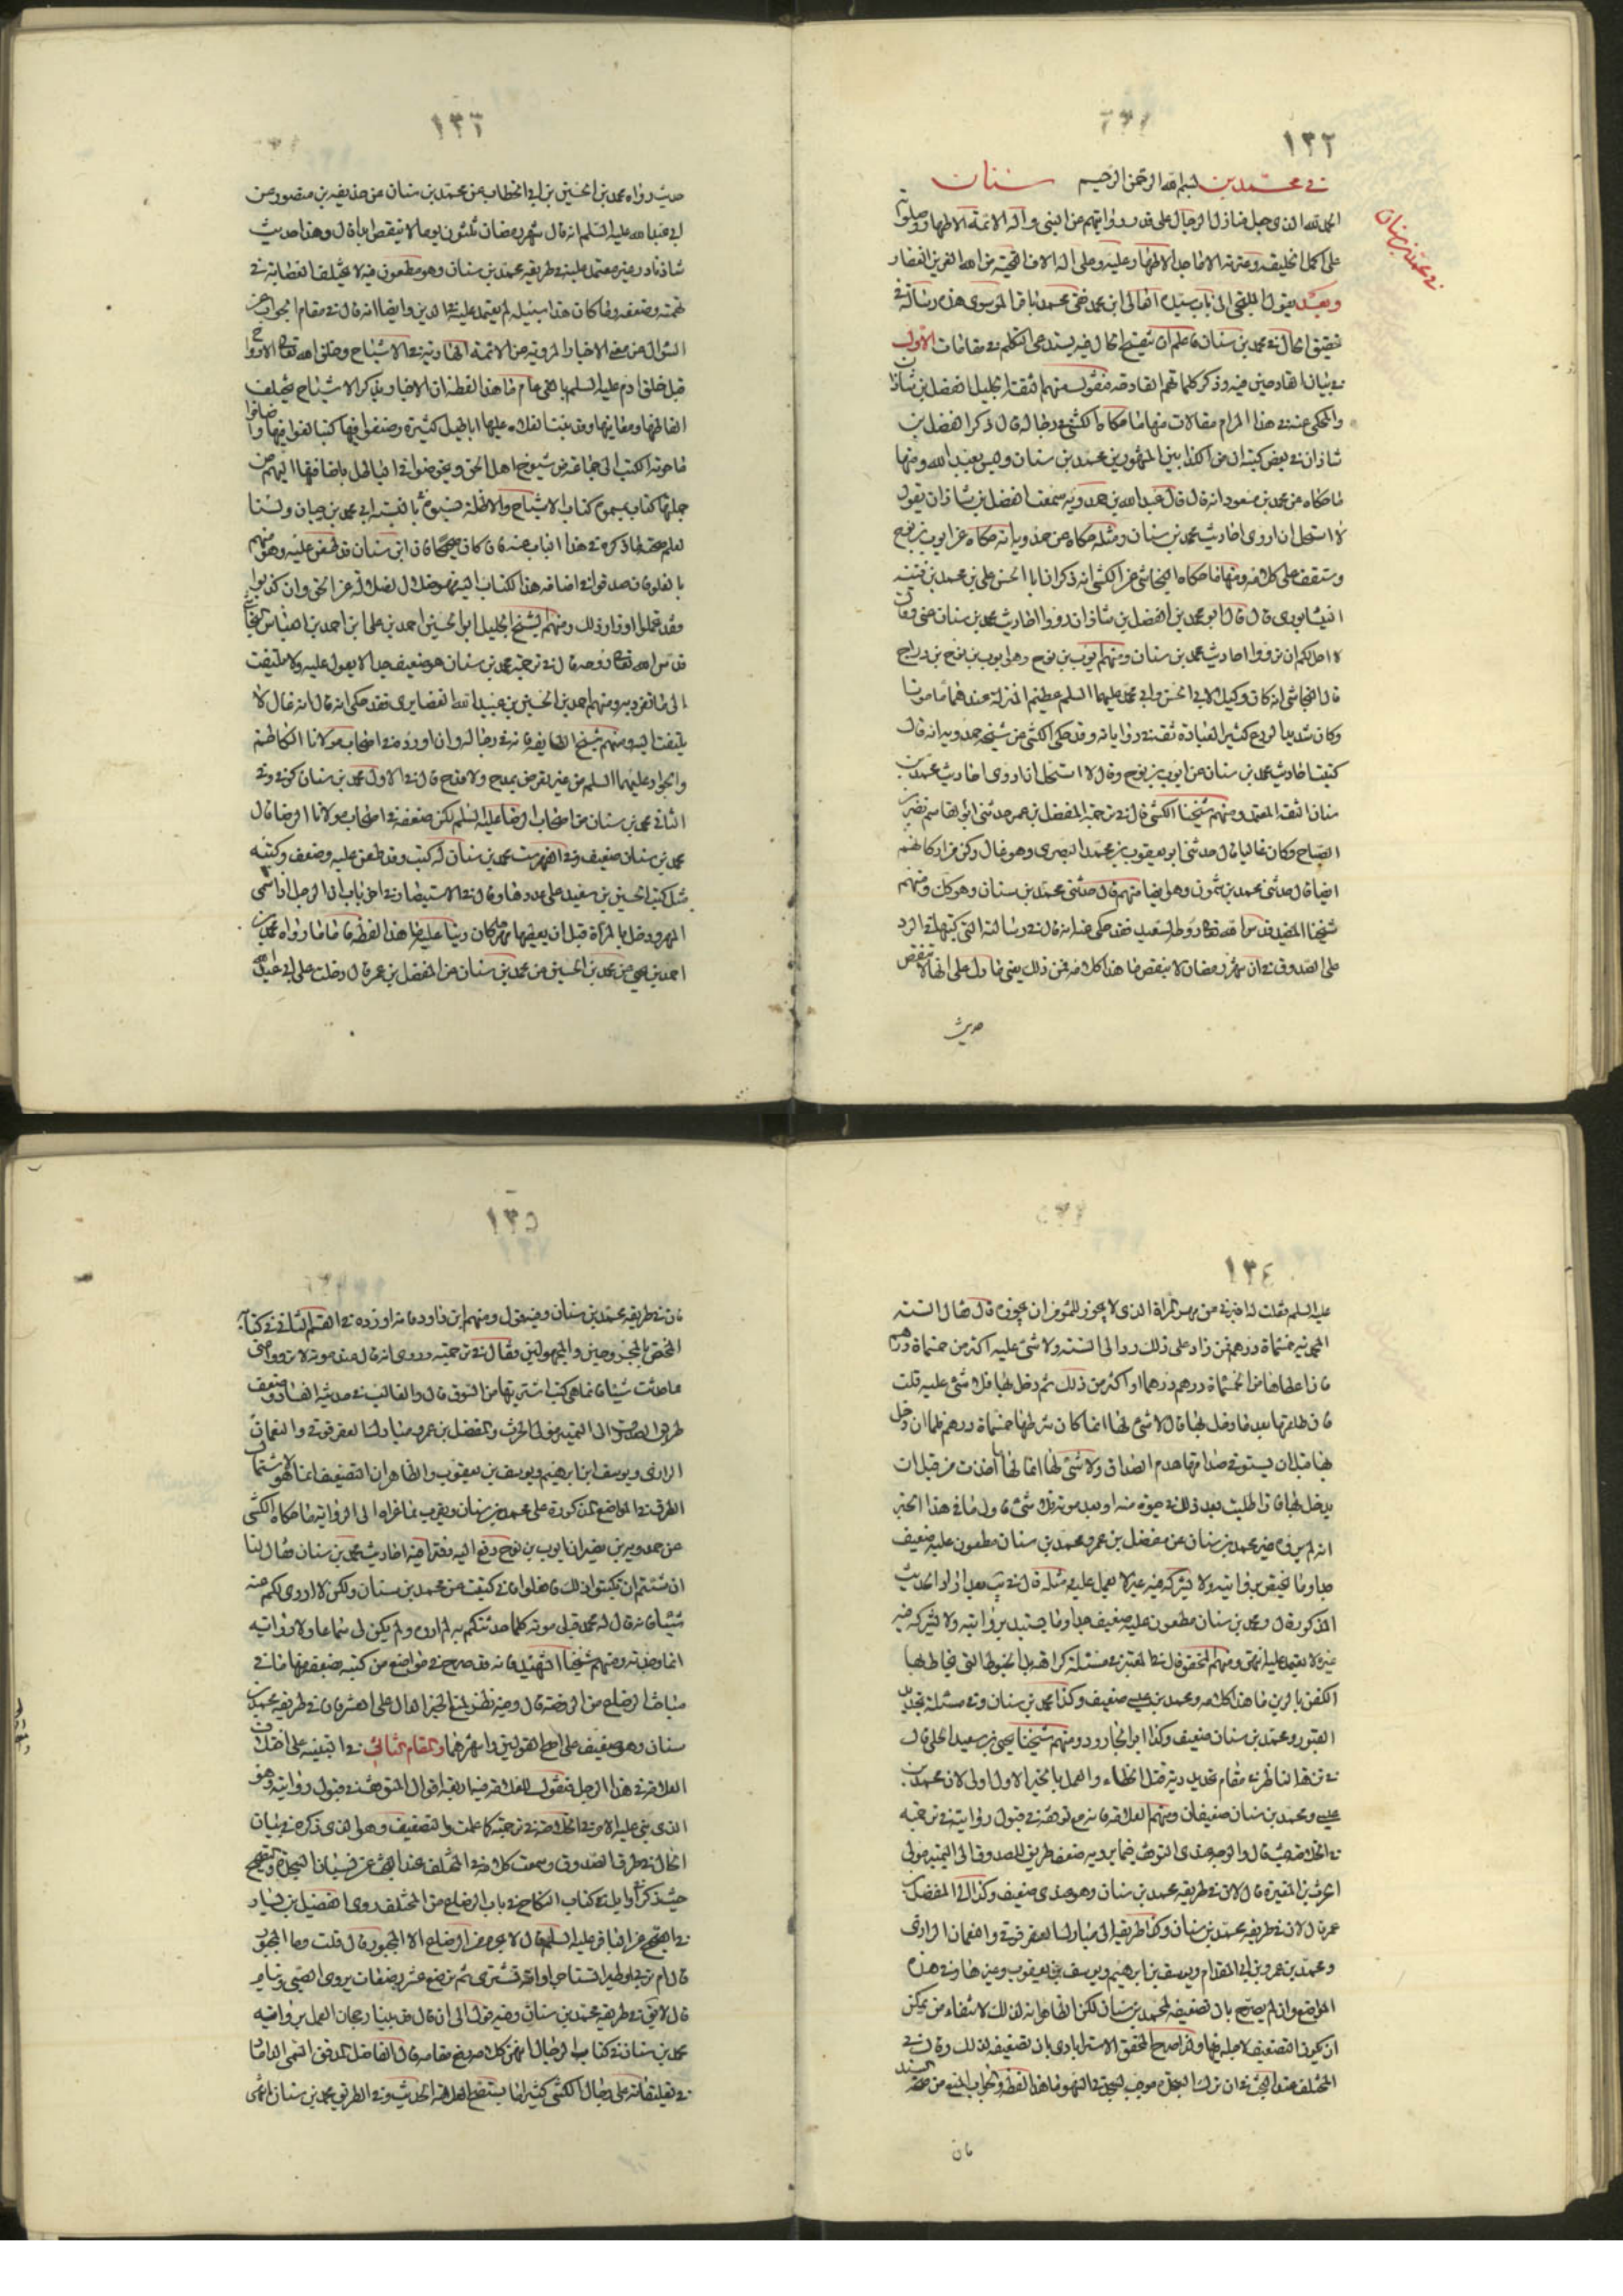 ١٣٢
في محمد بن بسم الله الرحمن الرحيم سنان
في محمد بن سنان
الحمد لله الذي جعل منازل الرجال على قدر رواياتهم عن النبي وآله الائمة الاطهار وصلوته
على اكمل الخليقة وعترته الاماجد الاطهار عليه وعلى اله الاف التحية من الله العزيز الغفار
وبعد يقول الملتجي الى باب سيده العالي ابن محمد نقي محمد باقر الموسوي هذه رسالة في
تحقيق الحال في محمد بن سنان فاعلم ان تنقيح الحال فيه يستدعي التكلم في مقامات الاول
في بيان القادحين فيه وذكر كلماتهم القادحة فنقول منهم الثقة الجليل الفضل بن شاذان
والمحكي عنه في هذا المرام مقالات منها ما حكاه الكشي في رجاله قال ذكر الفضل بن
شاذان في بعض كتبه ان من الكذابين المشهورين محمد بن سنان وليس بعبد الله ومنها
ما حكاه عن محمد بن مسعود انه قال قال عبد الله بن حمدويه سمعت الفضل بن شاذان يقول
لا استحل ان اروي احاديث محمد بن سنان ومثله حكاه عن حمدويه انه حكاه عن ايوب بن نوح
وستقف على كلامه ومنها ما حكاه النجاشي عن الكشي انه ذكر ان ابا الحسن علي بن محمد بن قتيبة
النيشابوري قال قال ابو محمد بن الفضل بن شاذان ردوا احاديث محمد بن سنان عني وقال
لا احل لكم ان ترووا احاديث محمد بن سنان ومنهم ايوب بن نوح وهو ايوب بن نوح بن دراج
قال النجاشي انه كان وكيلا لابي الحسن وابي محمد عليهما السلم عظيم المنزلة عندهما مأمونا
وكان شديد الورع كثير العبادة ثقة في رواياته وقد حكى الكشي عن شيخه حمدويه انه قال
كتبت احاديث محمد بن سنان عن ايوب بن نوح وقال لا استحل ان اروي احاديث محمد بن
سنان الثقة المعتمد ومنهم شيخنا الكشي قال في ترجمة المفضل بن عمر حدثني ابو القاسم نصر بن
الصباح وكان غاليا قال حدثني ابو يعقوب بن محمد البصري وهو غال ركن من اركانهم
ايضا قال حدثني محمد بن شمون وهو ايضا منهم قال حدثني محمد بن سنان وهو كك ومنهم
شيخنا المفيد قدس الله تعالى روحه السعيد فقد حكى عنه انه قال في رسالته التي كتبها في الرد
على الصدوق في ان شهر رمضان لا ينقص ما هذا كلامه فمن ذلك يعني مما دل على انه لا ينقص
حديث
١٣٣
حديث رواه محمد بن الحسين بن ابي الخطاب عن محمد بن سنان عن حذيفة بن منصور عن
ابي عبد الله عليه السلم انه قال شهر رمضان ثلثون يوما لا ينقص ابدا قال وهذا حديث
شاذ نادر غير معتمد عليه في طريقه محمد بن سنان وهو مطعون فيه لا يختلف العصابة في
تهمته وضعفه وما كان هذا سبيله لم يعتمد عليه في الدين وايضا انه قال في مقام الجواب عن
السؤال عن معنى الاخبار المروية عن الائمة الهادية في الاشباح وخلق الله تعالى الارواح
قبل خلق ادم عليه السلم بالفي عام ما هذا لفظه ان الاخبار بذكر الاشباح يختلف
الفاظها ومعانيها وقد بنت الغلاة عليها اباطيل كثيرة وصنفوا فيها كتبا لغوا فيها واضافوا
ما حوته الكتب الى جماعة من شيوخ اهل الحق وتخرصوا في الباطل باضافتها اليهم من
جملتها كتاب سموه كتاب الاشباح والاظلة نسبوه في تأليفه الى محمد بن سنان ولسنا
نعلم صحة ما ذكروه في هذا الباب عنه فان كان صحيحا فان ابن سنان قد طعن عليه وهو متهم
بالغلو فان صدقوا في اضافة هذا الكتاب اليه فهو ضلال لضلاله عن الحق وان كذبوا
فقد تحملوا اوزار ذلك ومنهم الشيخ الجليل ابو الحسين احمد بن علي ابن احمد بن العباس النجاشي
قدس الله تعالى روحه قال في ترجمة محمد بن سنان هو ضعيف جدا لا يعول عليه ولا يلتفت
الى ما تفرد به ومنهم احمد بن الحسين بن عبيد الله الغضايري فقد حكى انه قال انه غال لا
يلتفت اليه ومنهم شيخ الطايفة فانه في رجاله وان اورده في اصحاب مولانا الكاظم
والجواد عليهما السلم من غير تعرض بمدح ولا قدح قال في الاول محمد بن سنان كوفي وفي
الثاني محمد بن سنان من اصحاب الرضا عليه السلم لكن ضعفه في اصحاب مولانا الرضا قال
محمد بن سنان ضعيف وفي الفهرست محمد بن سنان له كتب وقد طعن عليه وضعف وكتبه
مثل كتب الحسين بن سعيد على عددها وقال في الاستبصار في اخر باب ان الرجل اذا سمى
المهر ودخل بالمرأة قبل ان يعطيها مهرها كان دينا عليه ما هذا لفظه فاما ما رواه محمد بن
احمد بن يحيى عن محمد بن الحسين عن محمد بن سنان عن المفضل بن عمر قال دخلت على ابي عبد الله
١٣٤
عليه السلم فقلت له اخبرني عن مهر المرأة الذي لا يجوز للمؤمن ان يجوزه قال فقال السنة
المحمدية خمسمائة درهم فمن زاد على ذلك رد الى السنة ولا شئ عليه اكثر من خمسمائة درهم
فاذا اعطاها من الخمسمائة درهم درهما او اكثر من ذلك ثم دخل بها فلا شئ عليه قلت
فان طلقها بعد ما دخل بها قال لا شئ لها انما كان شرطها خمسمائة درهم فلما ان دخل
بها قبل ان يستوفي صداقها هدم الصداق ولا شئ لها انما لها ما اخذت من قبل ان
يدخل بها فاذا طلبت بعد ذلك في حيوة منه او بعد موته فلا شئ فاول ما في هذا الخبر
انه لم يروه غير محمد بن سنان عن مفضل بن عمر ومحمد بن سنان مطعون عليه ضعيف
جدا وما يختص بروايته ولا يشركه فيه غيره لا يعمل عليه مثله قال في يب بعد ايراد الحديث
المذكور قال ومحمد بن سنان مطعون عليه ضعيف جدا وما يستبد بروايته ولا يشركه فيه
غيره لا يعتمد عليه انتهى ومنهم المحقق قال في المعتبر في مسئلة كراهة بل الخيوط التي يخاط بها
الكفن بالريق ما هذا كلامه ومحمد بن عيسى ضعيف وكذا محمد بن سنان وفي مسئلة تجديد
القبور ومحمد بن سنان ضعيف وكذا ابو الجارود ومنهم شيخنا يحيى بن سعيد الحلي قال
في نزهة الناظر في مقام تحديد دية قتل الخطاء والعمل بالخبر الاول اولى لان محمد بن
عيسى ومحمد بن سنان ضعيفان ومنهم العلامة فانه مع توقفه في قبول روايته في ترجمته
في الخلاصة حيث قال والوجه عندي التوقف فيما يرويه ضعف طريق الصدوق الى اليتيم مولى
الحرث بن المغيرة قال لان في طريقه محمد بن سنان وهو عندي ضعيف وكذا الى المفضل بن
عمر قال لان في طريقه محمد بن سنان وكذا طريقه الى مبارك العقرقوفي والنعمان الرازي
ومحمد بن عمرو بن ابي المقدام ويوسف بن ابرهيم ويوسف بن يعقوب وغيرها وفي هذه
المواضع وان لم يصرح بان تضعيفه لمحمد بن سنان لكن الظاهر انه لذلك لانتفاء من يمكن
ان يكون التضعيف لاجله فيها وقد صرح المحقق الاسترابادي بان تضعيفه لذلك وقال في
المختلف عند البحث في ان ترك البسملة موجب لسجدتي السهو ما هذا لفظه والجواب المنع من صحة السند
فان
١٣٥
فان في طريقه محمد بن سنان وفيه قول ومنهم ابن داود فانه اورده في القسم الثاني في كتابه
المختص بالمجروحين والمجهولين وقال في ترجمته وروي انه قال عند موته لا ترووا عني
مما حدثت شيئا فانما هي كتب اشتريتها من السوق قال والغالب في حديثه الفساد وضعف
طريق الصدوق الى اليتيم مولى الحرث والمفضل بن عمر ومبارك العقرقوفي والنعمان
الرازي ويوسف ابن ابرهيم ويوسف بن يعقوب والظاهر ان التضعيف انما هو لاشتمال
الطرق في المواضع المذكورة على محمد بن سنان ويقرب مما عزاه الى الرواية ما حكاه الكشي
عن حمدويه بن نصير ان ايوب بن نوح دفع اليه دفترا فيه احاديث محمد بن سنان فقال لنا
ان شئتم ان تكتبوا ذلك فافعلوا فاني كتبت عن محمد بن سنان ولكن لا اروي لكم عنه
شيئا فانه قال له محمد قبل موته كلما حدثتكم به لم اروه ولم يكن لي سماعا ولا رواية
انما وجدته ومنهم شيخنا الشهيد فانه قد صرح في مواضع من كتبه بضعفه منها ما في
مباحث الرضاع من الروضة قال وفيه نظر لمنع الخبر الدال على العشر فان في طريقه محمد بن
سنان وهو ضعيف على اصح القولين واشهرهما والمقام الثاني في التنبيه على اختلاف
العلامة في هذا الرجل فنقول للعلامة فيه اربعة اقوال التوقف في قبول روايته وهو
الذي بنى عليه الامر في الخلاصة في ترجمته كما علمت والتضعيف وهو الذي ذكره في بيان
الحال في طرق الصدوق وسمعت كلامه في المختلف عند البحث عن نسيان السجدة والتصحيح
حيث ذكر اوايل في كتاب النكاح في باب الرضاع من المختلف روى الفضيل بن يسار
في الصحيح عن الباقر عليه السلم قال لا يحرم من الرضاع الا المجبور قال قلت وما المجبور
قال ام تربي او ظئر تستاجر او امة تشتري ثم ترضع عشر رضعات يروي الصبي وينام
قال لا يق في طريقه محمد بن سنان وفيه قول الى ان قال قد بينا رجحان العمل برواية
محمد بن سنان في كتاب الرجال انتهى كلامه رفع مقامه قال الفاضل المدقق السمي الداماد
في تعليقاته على رجال الكشي كثيرا ما يستصح العلامة الحديث وفي الطريق محمد بن سنان انتهى